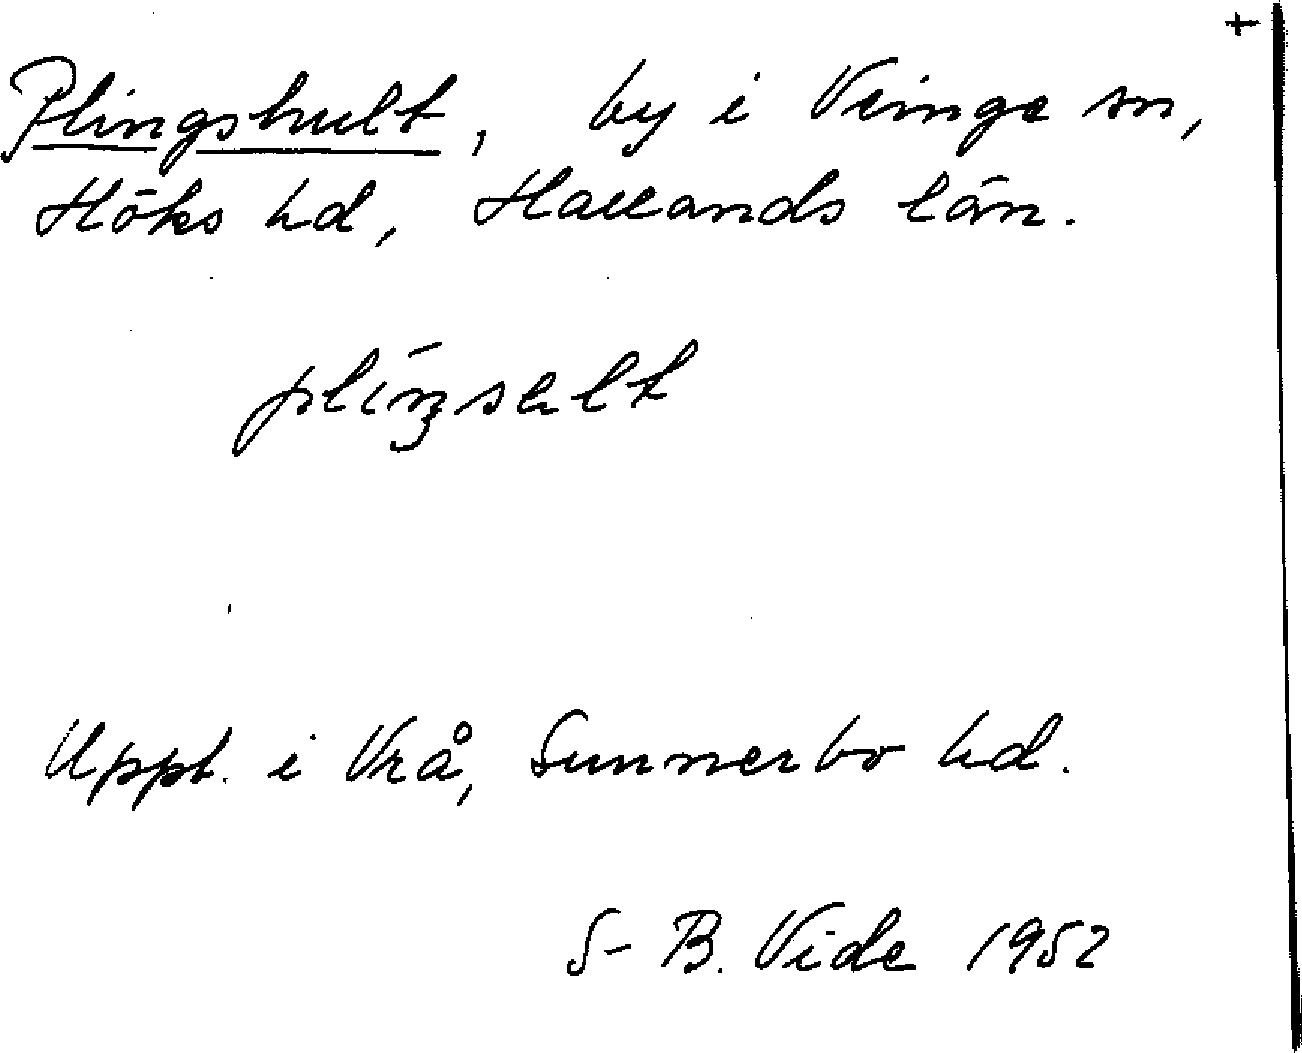 +
Plingshult, by i Veinge sn,
Höks hd, Hallands län.
plíŋsɐlt
Uppt. i Vrå, Sunnerbo hd.
S-B. Vide 1952